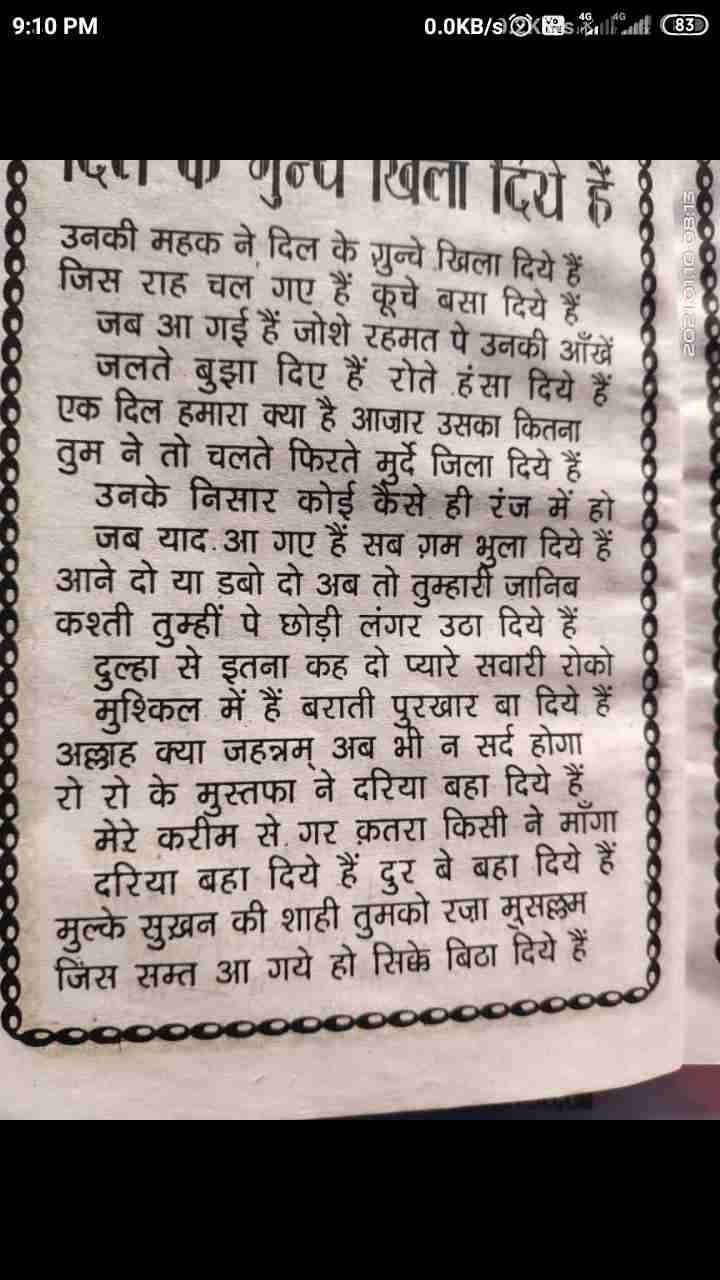 9:10 PM 0.0KB/s 4G 4G 83
खिला दिये हैं
उनकी महक ने दिल के गुन्चे खिला दिये हैं
जिस राह चल गए हैं कूचे बसा दिये हैं
जब आ गई हैं जोशे रहमत पे उनकी आँखें
जलते बुझा दिए हैं रोते हंसा दिये हैं
एक दिल हमारा क्या है आज़ार उसका कितना
तुम ने तो चलते फिरते मुर्दे जिला दिये हैं
उनके निसार कोई कैसे ही रंज में हो
जब याद आ गए हैं सब ग़म भुला दिये हैं
आने दो या डबो दो अब तो तुम्हारी जानिब
कश्ती तुम्हीं पे छोड़ी लंगर उठा दिये हैं
दुल्हा से इतना कह दो प्यारे सवारी रोको
मुश्किल में हैं बराती पुरखार बा दिये हैं
अल्लाह क्या जहन्नम् अब भी न सर्द होगा
रो रो के मुस्तफा ने दरिया बहा दिये हैं
मेरे करीम से गर क़तरा किसी ने माँगा
दरिया बहा दिये हैं दुर बे बहा दिये हैं
मुल्के सुख़न की शाही तुमको रज़ा मूसल्लम
जिस सम्त आ गये हो सिक्के बिठा दिये हैं
2021.01.10 08:15